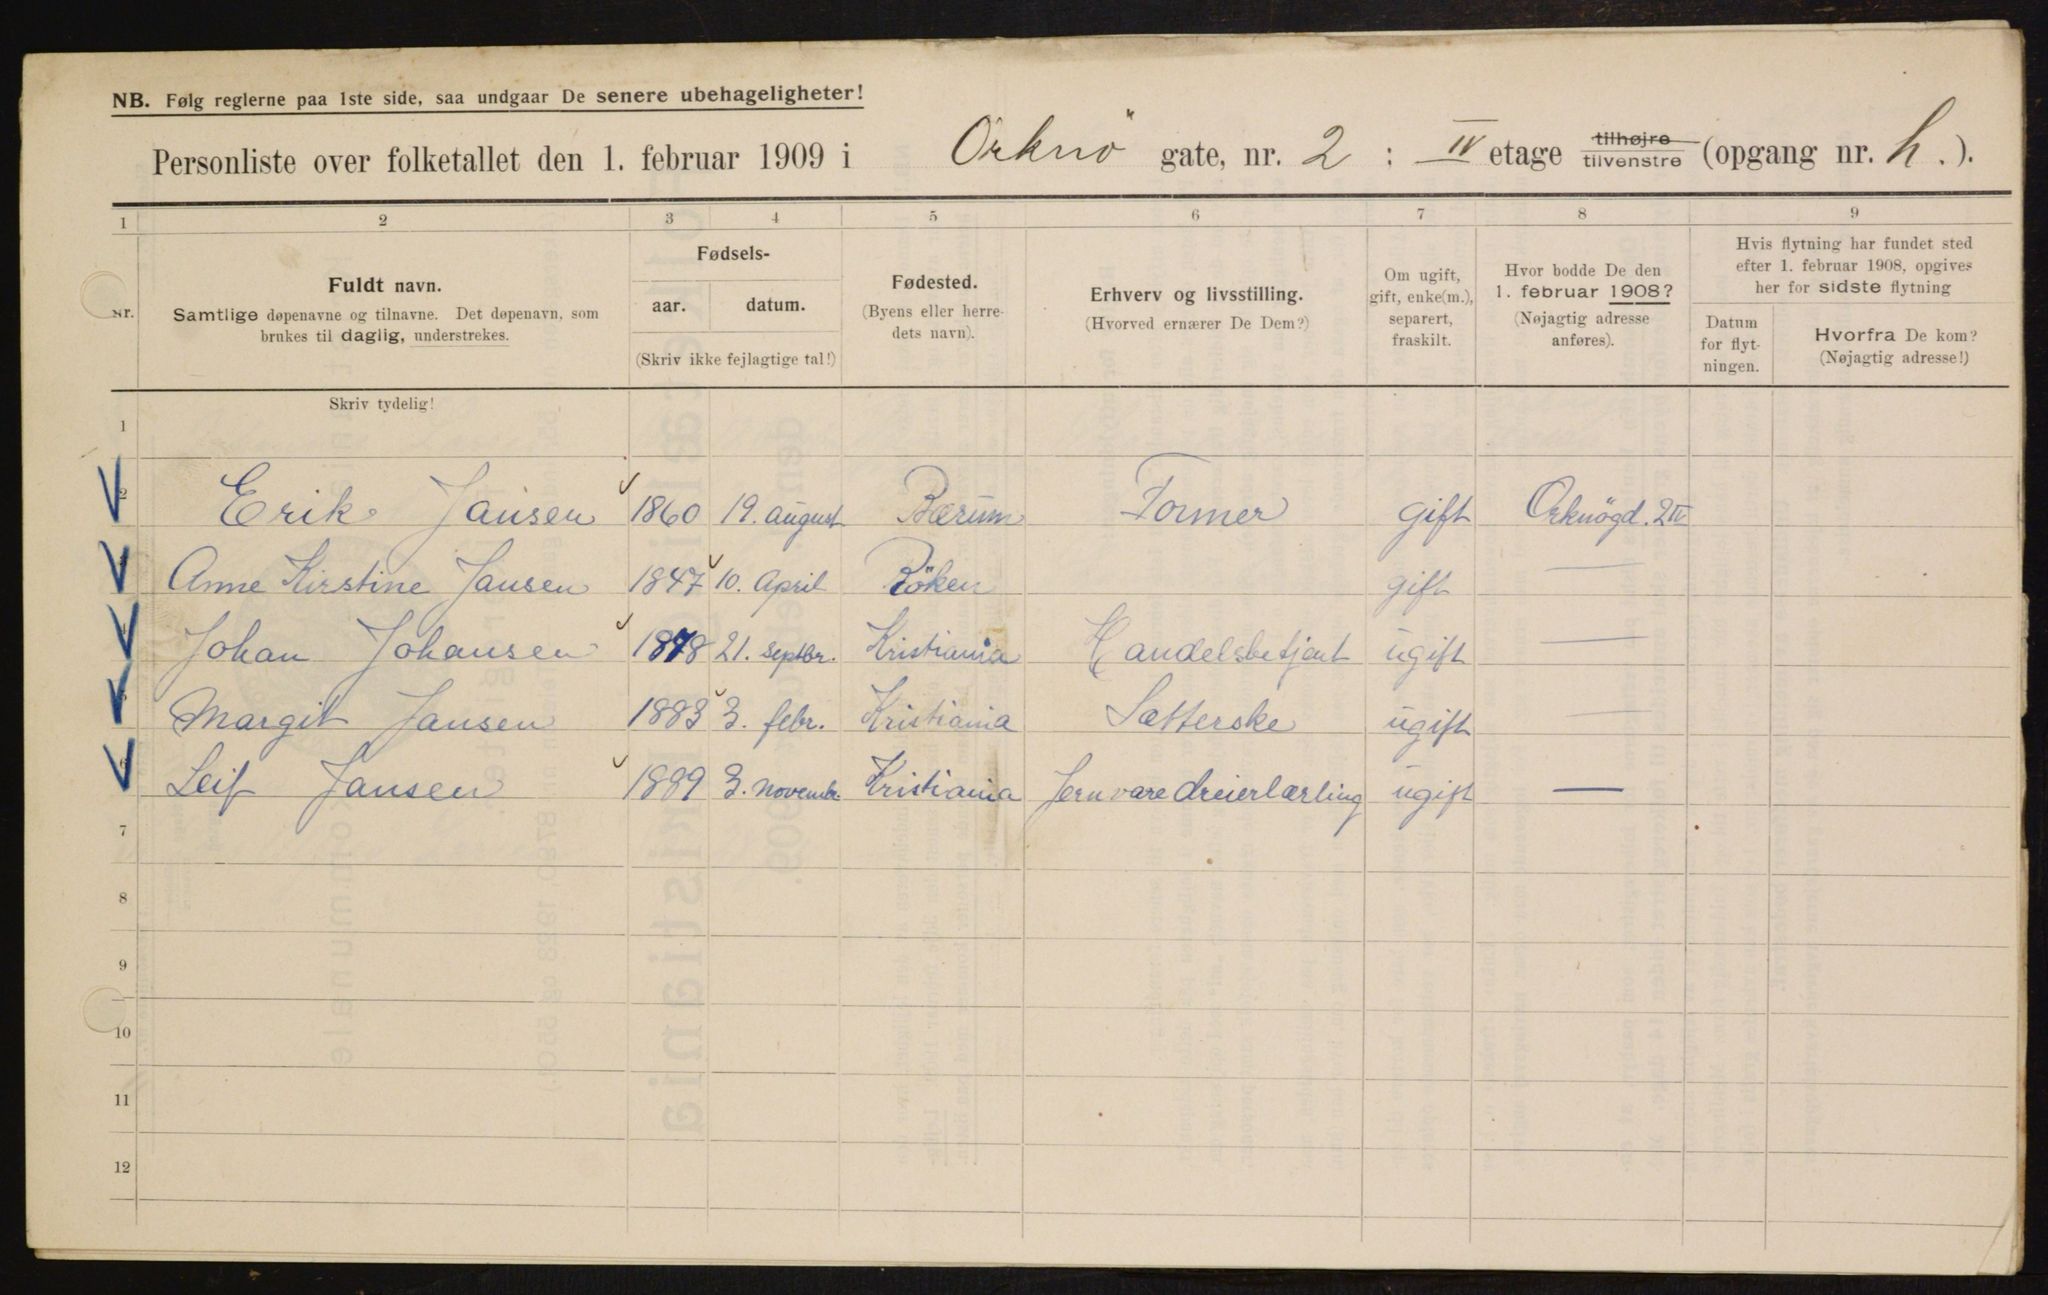 NB. Følg reglerne paa 1ste side, saa undgaar De senere ubehageligheter!
Personliste over folketallet den 1. februar 1909 i Orknö gate, nr. 2 : IV etage tilhøjre tilvenstre (opgang nr. h.).
1 2 3 4 5 6 7 8 9
Nr.
Fuldt navn.
Samtlige døpenavne og tilnavne. Det døpenavn, som
brukes til daglig, understrekes.
Fødsels-
aar. datum.
(Skriv ikke fejlagtige tal!)
Fødested.
(Byens eller herre-
dets navn).
Erhverv og livsstilling.
(Hvorved ernærer De Dem?)
Om ugift,
gift, enke(m.),
separert,
fraskilt.
Hvor bodde De den
1. februar 1908?
(Nøjagtig adresse
anføres).
Hvis flytning har fundet sted
efter 1. februar 1908, opgives
her for sidste flytning
Datum
for flyt-
ningen.
Hvorfra De kom?
(Nøjagtig adresse!)
Skriv tydelig!
1
2 Erik Jansen 1860 19. august Bærum Former gift Orknögd. 2 IV
3 Anne Kirstine Jansen 1847 10. April Röken gift —
4 Johan Johansen 1878 21. septbr. Kristiania Handelsbetjent ugift —
5 Margit Jansen 1883 3. febr. Kristiania Sætterske ugift —
6 Leif Jansen 1889 3. novembr. Kristiania Jernvaredreierlærling ugift —
7
8
9
10
11
12